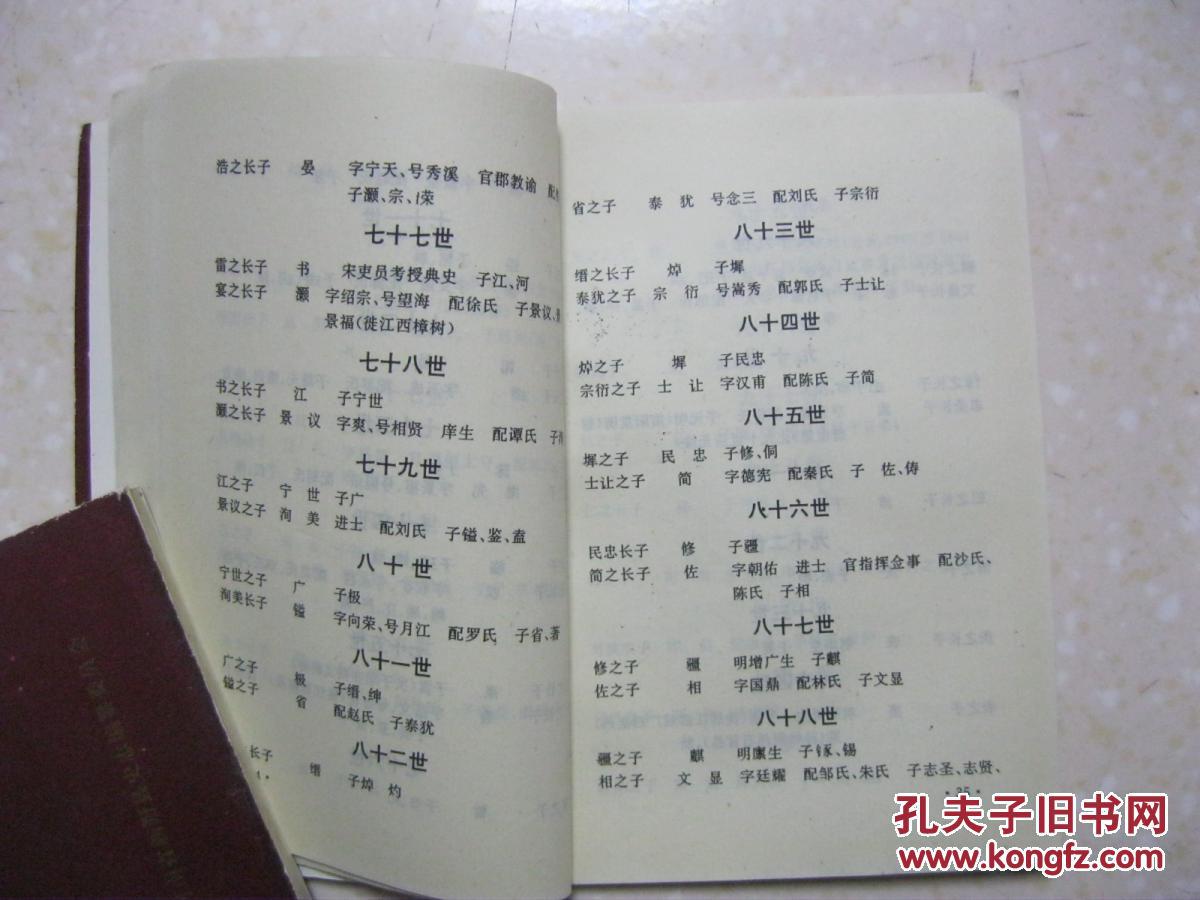 浩之长子 晏 字宁天、号秀溪 官郡教谕 配
子灏、宗、荣
七十七世
雷之长子 书 宋吏员考授典史 子江、河
宴之长子 灏 字绍宗、号望海 配徐氏 子景议、
景福(徙江西樟树)
七十八世
书之长子 江 子宁世
灏之长子 景 议 字爽、号相贤 庠生 配谭氏 子
七十九世
江之子 宁 世 子广
景议之子 洵 美 进士 配刘氏 子镒、鉴、盍
八十世
宁世之子 广 子极
洵美长子 镒 字向荣、号月江 配罗氏 子省、著
八十一世
广之子 极 子缙、绅
镒之子 省 配赵氏 子泰犹
八十二世
长子 缙 子焯 灼
省之子 泰 犹 号念三 配刘氏 子宗衍
八十三世
缙之长子 焯 子墀
泰犹之子 宗 衍 号嵩秀 配郭氏 子士让
八十四世
焯之子 墀 子民忠
宗衍之子 士 让 字汉甫 配陈氏 子简
八十五世
墀之子 民 忠 子修、侗
士让之子 简 字德宪 配秦氏 子 佐、俦
八十六世
民忠长子 修 子疆
简之长子 佐 字朝佑 进士 官指挥佥事 配沙氏、
陈氏 子相
八十七世
修之子 疆 明增广生 子麒
佐之子 相 字国鼎 配林氏 子文显
八十八世
疆之子 麒 明廪生 子 、锡
相之子 文 显 字廷耀 配邹氏、朱氏 子志圣、志贤、
·35·
孔夫子旧书网
www.kongfz.com